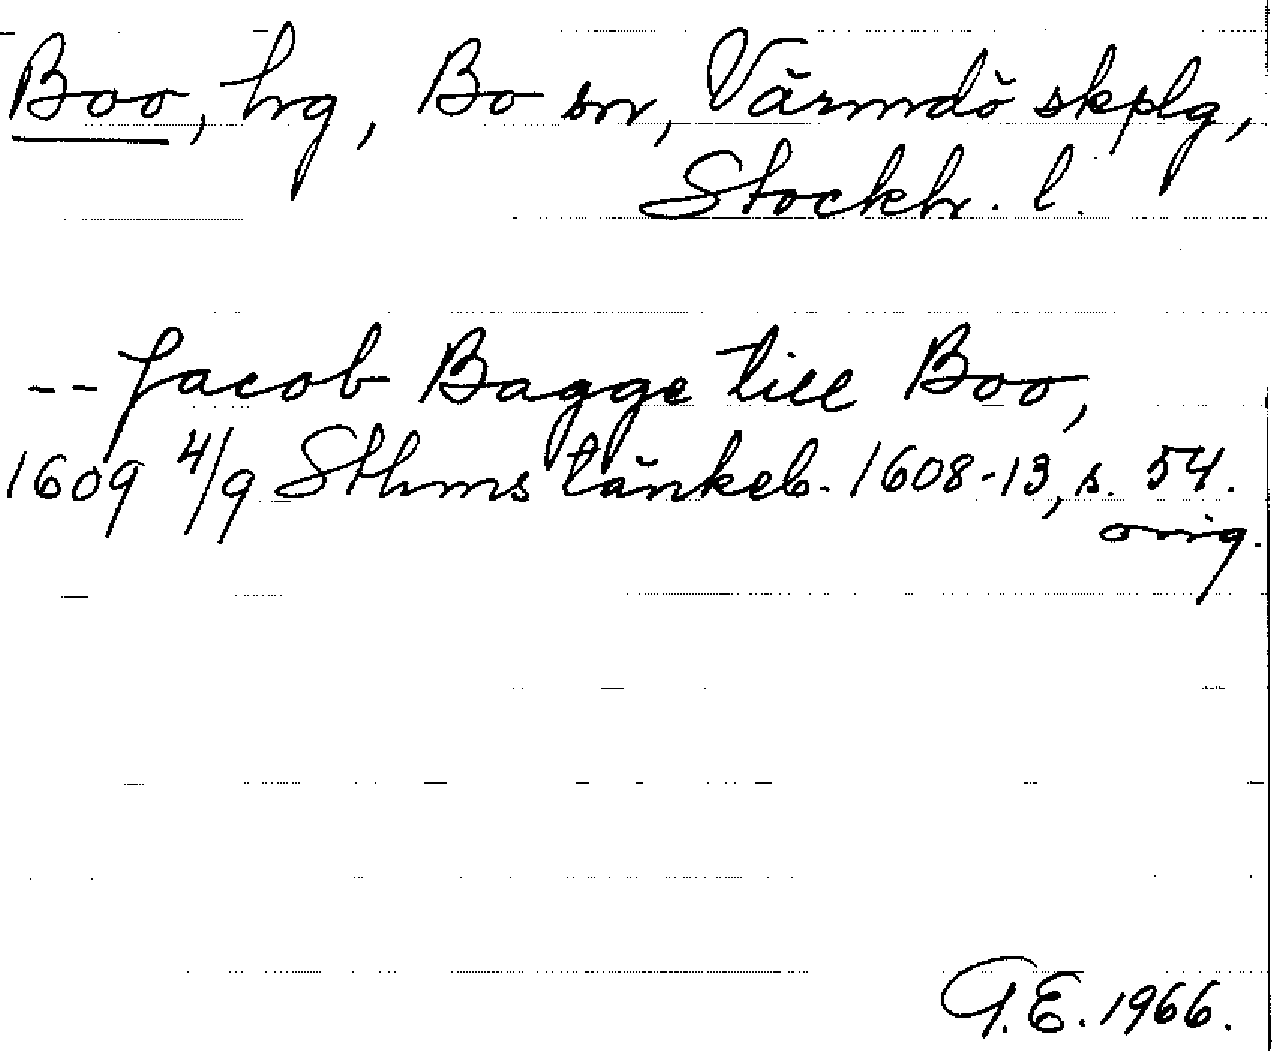 Boo, hg, Bo sn, Värmdö skplg,
Stockh. l.
-- Jacob Bagge till Boo,
1609 4/9 Sthms tänkeb. 1608-13, s. 54.
orig.
G.E. 1966.